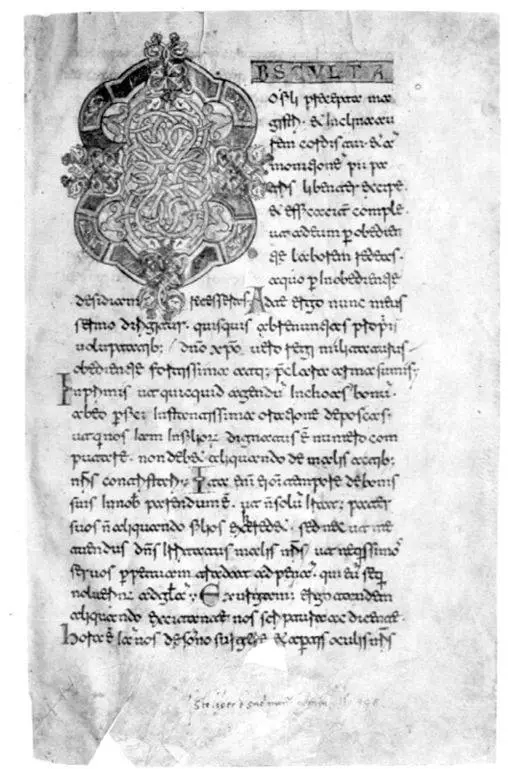 BSCVLTA
o fili precepta ma
gistri. & inclina au
rem cordis tui. & ad
monitione pii pa
tris libenter excipe.
& efficacit comple.
ut ad eum p obedien
tie laborem redeas.
a quo p inobedientie
desidiam recesseras. Ad te ergo nunc meus
sermo dirigitur. quisquis abrenuntias propriis
voluptatib; dno xpo vero regi militaturus
obedientie fortissima atq; preclara arma sumis;
Inprimis ut quicquid agendu inchoas bonu.
ab eo pfici instantissima oratione deposcas.
ut qui nos iam in filior dignatus e numero com
putare. non debet aliquando de malis actib;
nris contristari; Ita eni ei omi tempore de bonis
suis in nob parendum e. ut n solu iratus pater
suos n aliquando filios exheredet. sed nec ut me
tuendus dns irritatus malis nris ut nequissimos
servos ppetuam tradat ad pena. qui eu sequi
noluerint ad gla; Exurgam ergo tandem
aliquando excitante nos scriptura ac dicente.
Hora e ia nos de somno surgere & aptis oculis nris